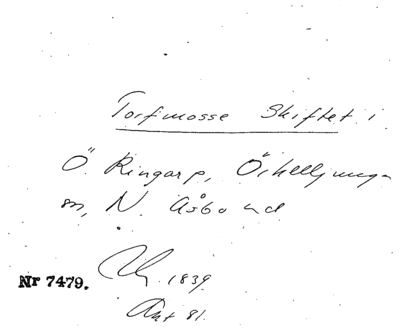 Torfmosse Skiftet i
Ö. Ringarp, Örkelljunga
sn, N. Åsbo hd
1839.
Nr 7479.
Akt 81.